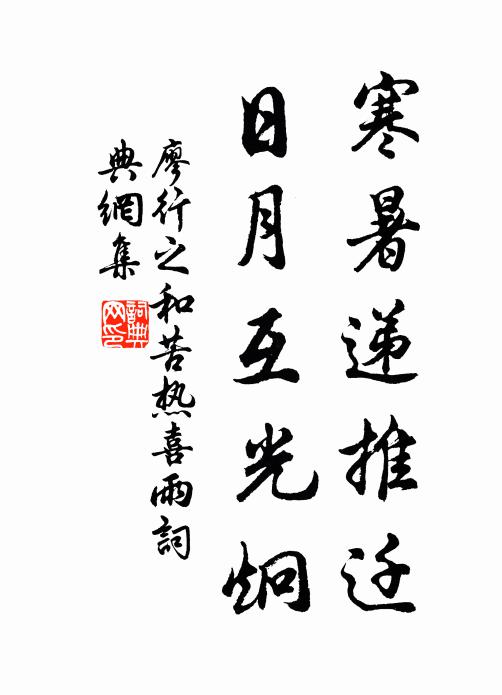 寒暑递推迁
日月互光炯
廖行之和苦热喜雨詞
典網集
詞典網印